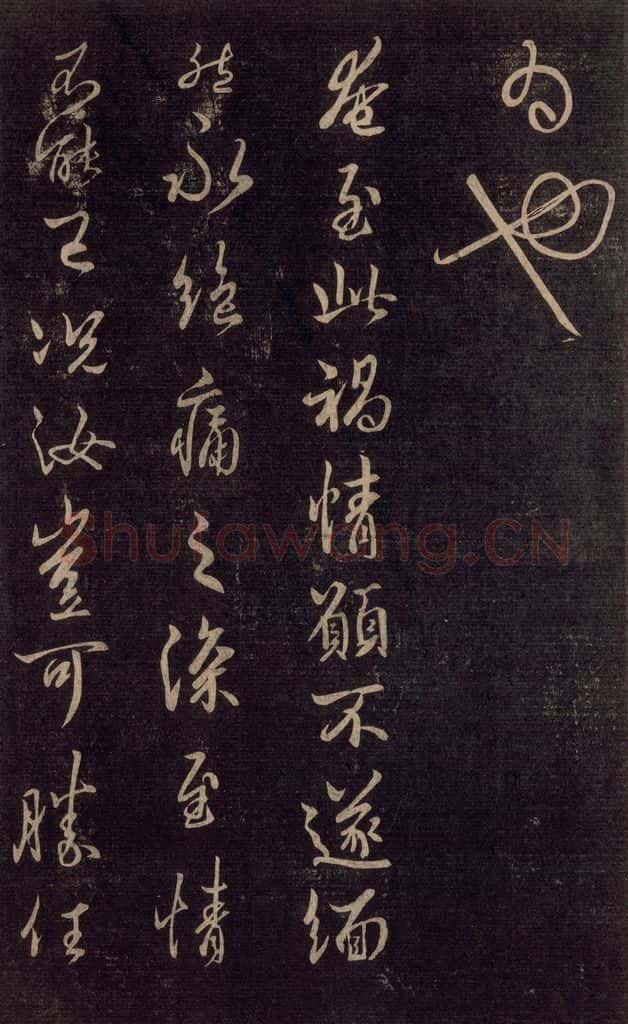 為也
奄至此禍情願不遂緬
然永絕痛之深至情
不能已況汝豈可勝任
Shufawang.CN